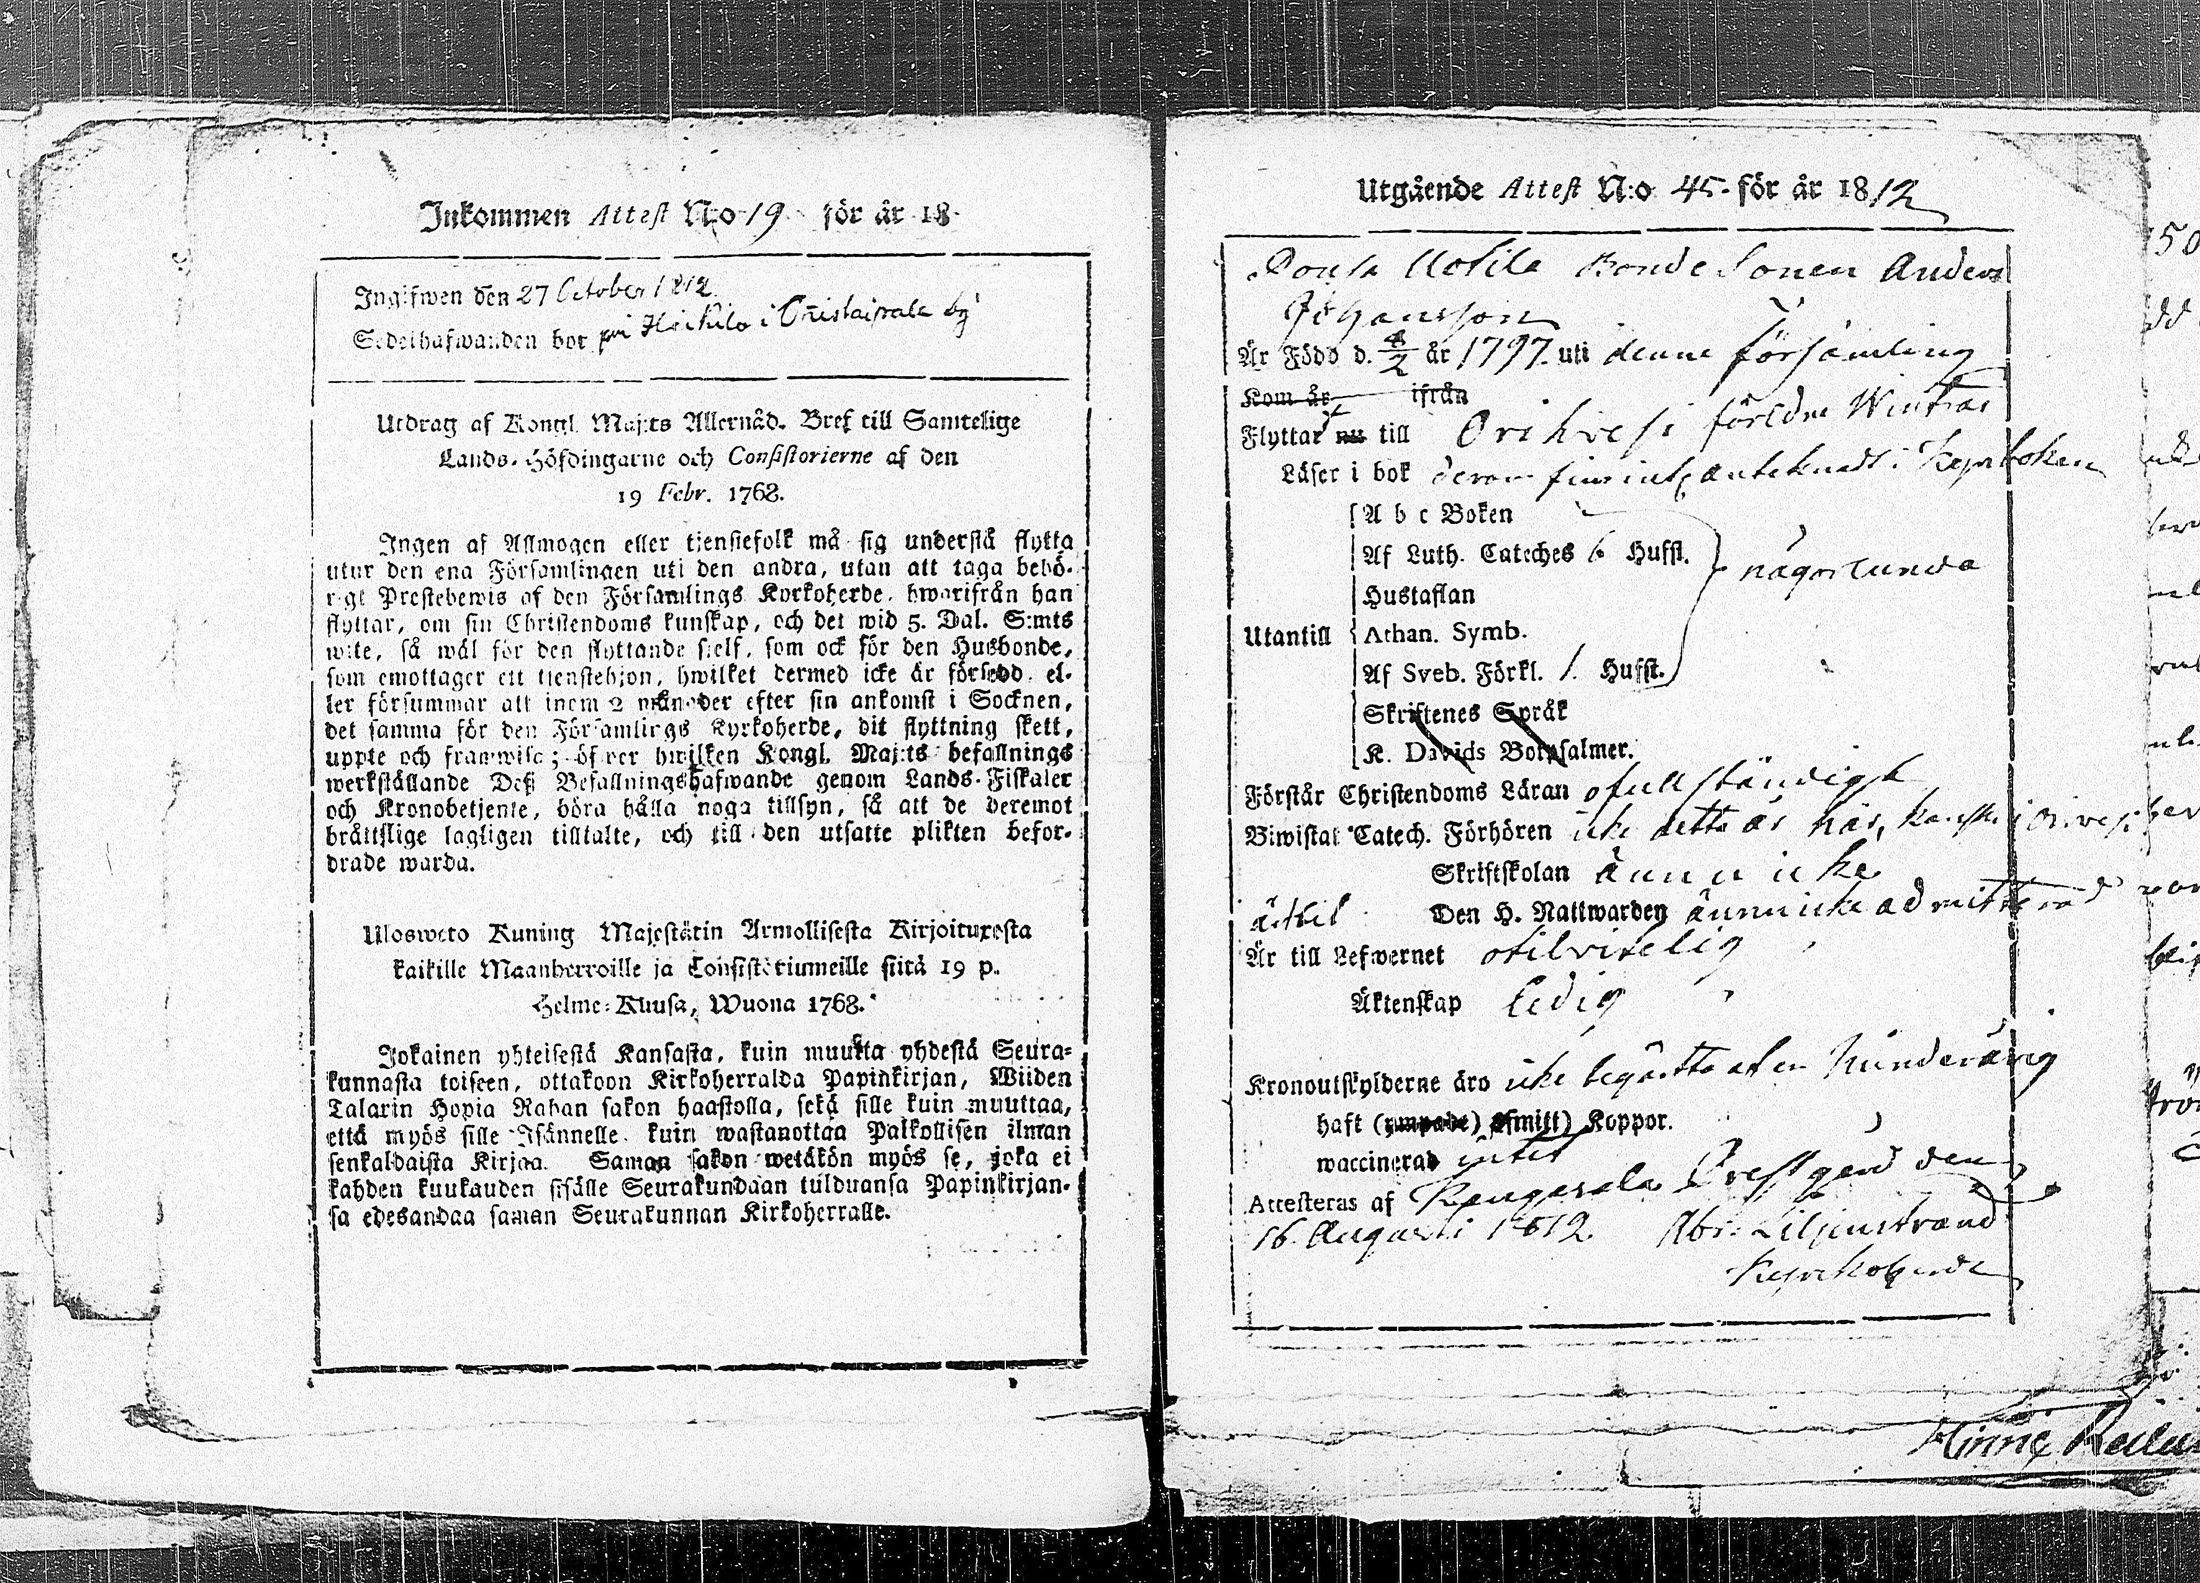 Inkommen Attest N:o 19 för år 18
Ingifwen den 27 October 1812.
Sedelhafwanden bor på Heikilä i by
Utdrag af Kongl. Maj:ts Allernåd. Bref till Samtelige
Lands-Höfdingarne och Consistorierne af den
19 Febr. 1768.
Ingen af Allmogen eller tjenstefolk må sig understå flytta
utur den ena Församlingen uti den andra, utan att taga behö-
rigt Prestebewis af den Församlings Kyrkoherde, hwarifrån han
flyttar, om sin Christendoms kunskap, och det wid 5. Dal. S:mts
wite, så wäl för den flyttande sielf, som ock för den Husbonde,
som emottager ett tjenstehjon, hwilket dermed icke är försedd, el-
ler försummar att inom 2 månader efter sin ankomst i Socknen,
det samma för den Församlings Kyrkoherde, dit flyttning skett,
uppte och framwisa; öfwer hwilken Kongl. Maj:ts befallnings
werkställande Deß Befallningshafwande genom Lands-Fiskaler
och Kronobetjente, böra hålla noga tillsyn, så att de deremot
bråttslige lagligen tilltalte, och till den utsatte plikten befor-
drade warda.
Ulosweto Kuning Majestätin Armollisesta Kirjoituxesta
kaikille Maanherroille ja Consistoriumeille siitä 19 p.
Helme-Kuusa, Wuona 1768.
Jokainen yhteisestä Kansasta, kuin muutta yhdestä Seura-
kunnasta toiseen, ottakoon Kirkoherralda Papinkirjan, Wiiden
Talarin Hopia Rahan sakon haastolla, sekä sille kuin muuttaa,
että myös sille Isännelle, kuin wastanottaa Palkollisen ilman
senkaldaista Kirjaa. Saman sakon wetäkön myös se, joka ei
kahden kuukauden sisälle Seurakundaan tulduansa Papinkirjan-
sa edesandaa saman Seurakunnan Kirkoherralle.
Utgående Attest N:o 45. för år 1812
Bonde Sonen Anders
Johansson
Är Född d. 4/2 år 1797. uti denne församling
Kom år ifrån
Flyttar nu till Orihvesi
Läser i bok derom fins intet antecknadt i Kyrkboken
A b c Boken
Af Luth. Cateches 6 Hufst.
någorlunda
Hustaflan
Utantill Athan. Symb.
Af Sveb. Förkl. 1. Hufst.
Skriftenes Språk
K. Davids Botpsalmer.
Förstår Christendoms Läran ofullständigt
Biwistat Catech. Förhören icke detta år här, kanske i Orivesi
Skriftskolan ännu icke
Den H. Nattwarden ännu icke admitterad
Är till Lefwernet otilvitelig
Äktenskap ledig
Kronoutskylderne äro icke begärtte af en Minderårig
haft (ympade) (smitt) Koppor.
waccinerad intet
Attesteras af Kangasala Prestgård den
16 Augusti 1812. Abr: Liljenstrand
Kyrkoherde
50